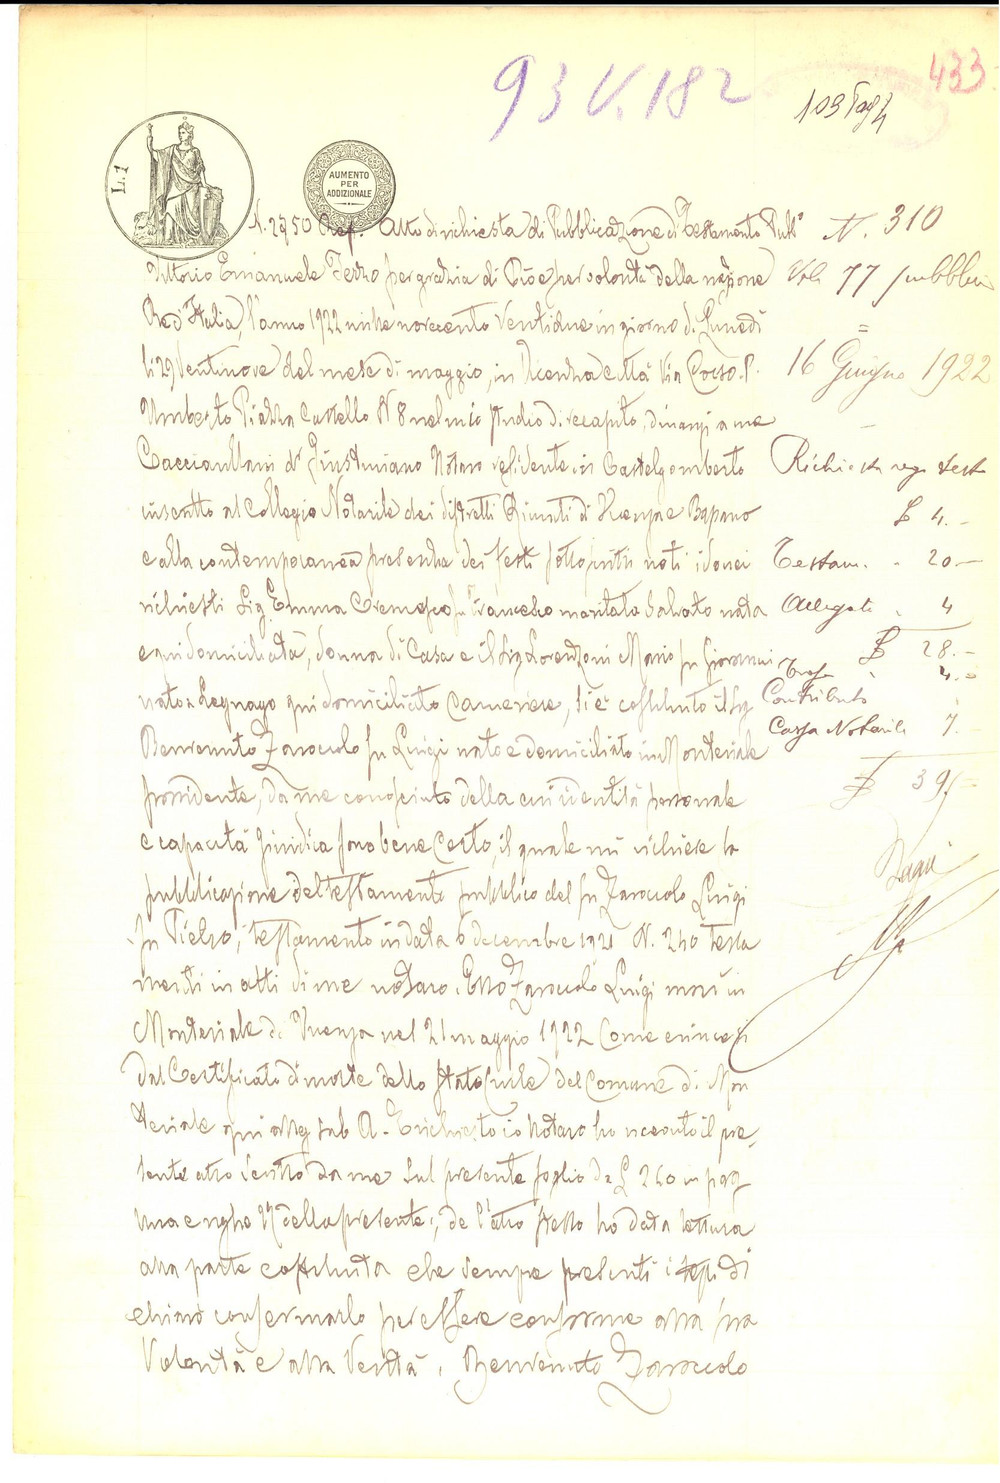 93 V. 182
433
103 Pag 4
L. 1
AUMENTO
PER
ADDIZIONALE
N. 2950 Rep. Atto di richiesta di Pubblicazione di Testamento Pubb°
Vittorio Emanuele Terzo per grazia di Dio e per volontà della nazione
Re d'Italia, l'anno 1922 mille novecento ventidue in giorno di Lunedì
li 29 Ventinove del mese di maggio, in Vicenza città Via Corso P.
Umberto Piazza Castello N 8 nel mio studio di recapito, dinanzi a me
di Giustiniano Notaro residente in Castelgomberto
inscritto al Collegio Notarile dei distretti Riuniti di Vicenza e Bassano
e alla contemporanea presenza dei testi sottoscritti noti idonei
richiesti Sig. Emma Cremasco fu Francesco maritata Salvato nata
e qui domiciliata, donna di Casa e il Sig Lorenzoni Mario fu Giovanni
nato a Legnago qui domiciliato Cameriere, si è costituito il Sig
Benvenuto Zaroccolo fu Luigi nato e domiciliato in Monteviale
possidente, da me conosciuto della cui identità personale
e capacità giuridica sono bene certo, il quale mi richiese la
pubblicazione del testamento pubblico del fu Zaroccolo Luigi
fu Pietro, testamento in data 6 decembre 1921 N. 240 testa
menti in atti di me notaro. Esso Zaroccolo Luigi morì in
Monteviale di Vicenza nel 21 maggio 1922 Come evincesi
dal Certificato di morte dello Stato Civile del Comune di Mon
teviale qui alleg sub A. E richiesto io Notaro ho ricevuto il pre,
sente atto scritto da me sul presente foglio da £ 240 in pag
una e righe della presente, de l'atto stesso ho data lettura
alla parte costituita che sempre presenti i testi di
chiarò confermarlo per essere conforme alla sua
Volontà e alla Verità. Benvenuto Zaroccolo
N. 310
Vol. 77 pubblici
=
16 Giugno 1922
Richiesta reg. test
£ 4.-
Testam. " 20.-
Allegati " 4
£ 28.-
Tassa " 4.=
Contributo
Cassa Notarile 7.-
£ 39.-